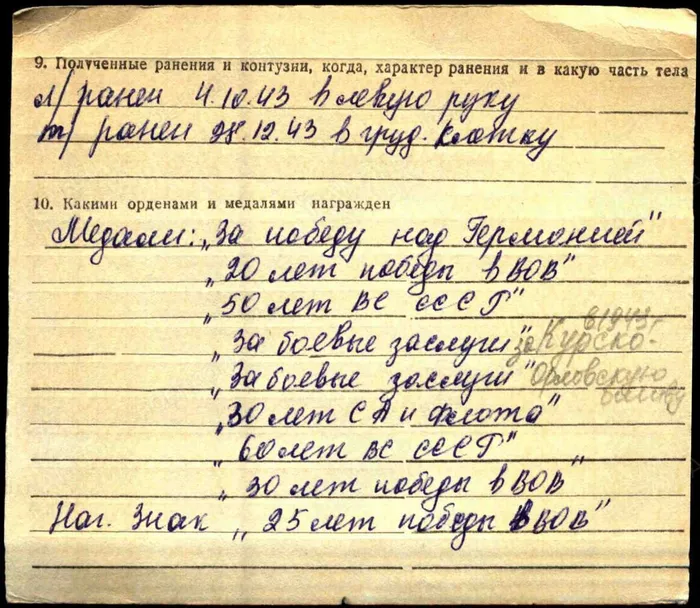 9. Полученные ранения и контузии, когда, характер ранения и в какую часть тела
л/ ранен 4.10.43 в левую руку
т/ ранен 28.12.43 в груд. клетку
10. Какими орденами и медалями награжден
Медали: „За победу над Германией"
„20 лет победы в ВОВ"
„50 лет ВС СССР"
„За боевые заслуги" за Курско-
в 1943 г.
„За боевые заслуги" Орловскую
битву
„30 лет СА и Флота"
„60 лет ВС СССР"
„30 лет победы в ВОВ"
Наг. Знак „25 лет победы в ВОВ"